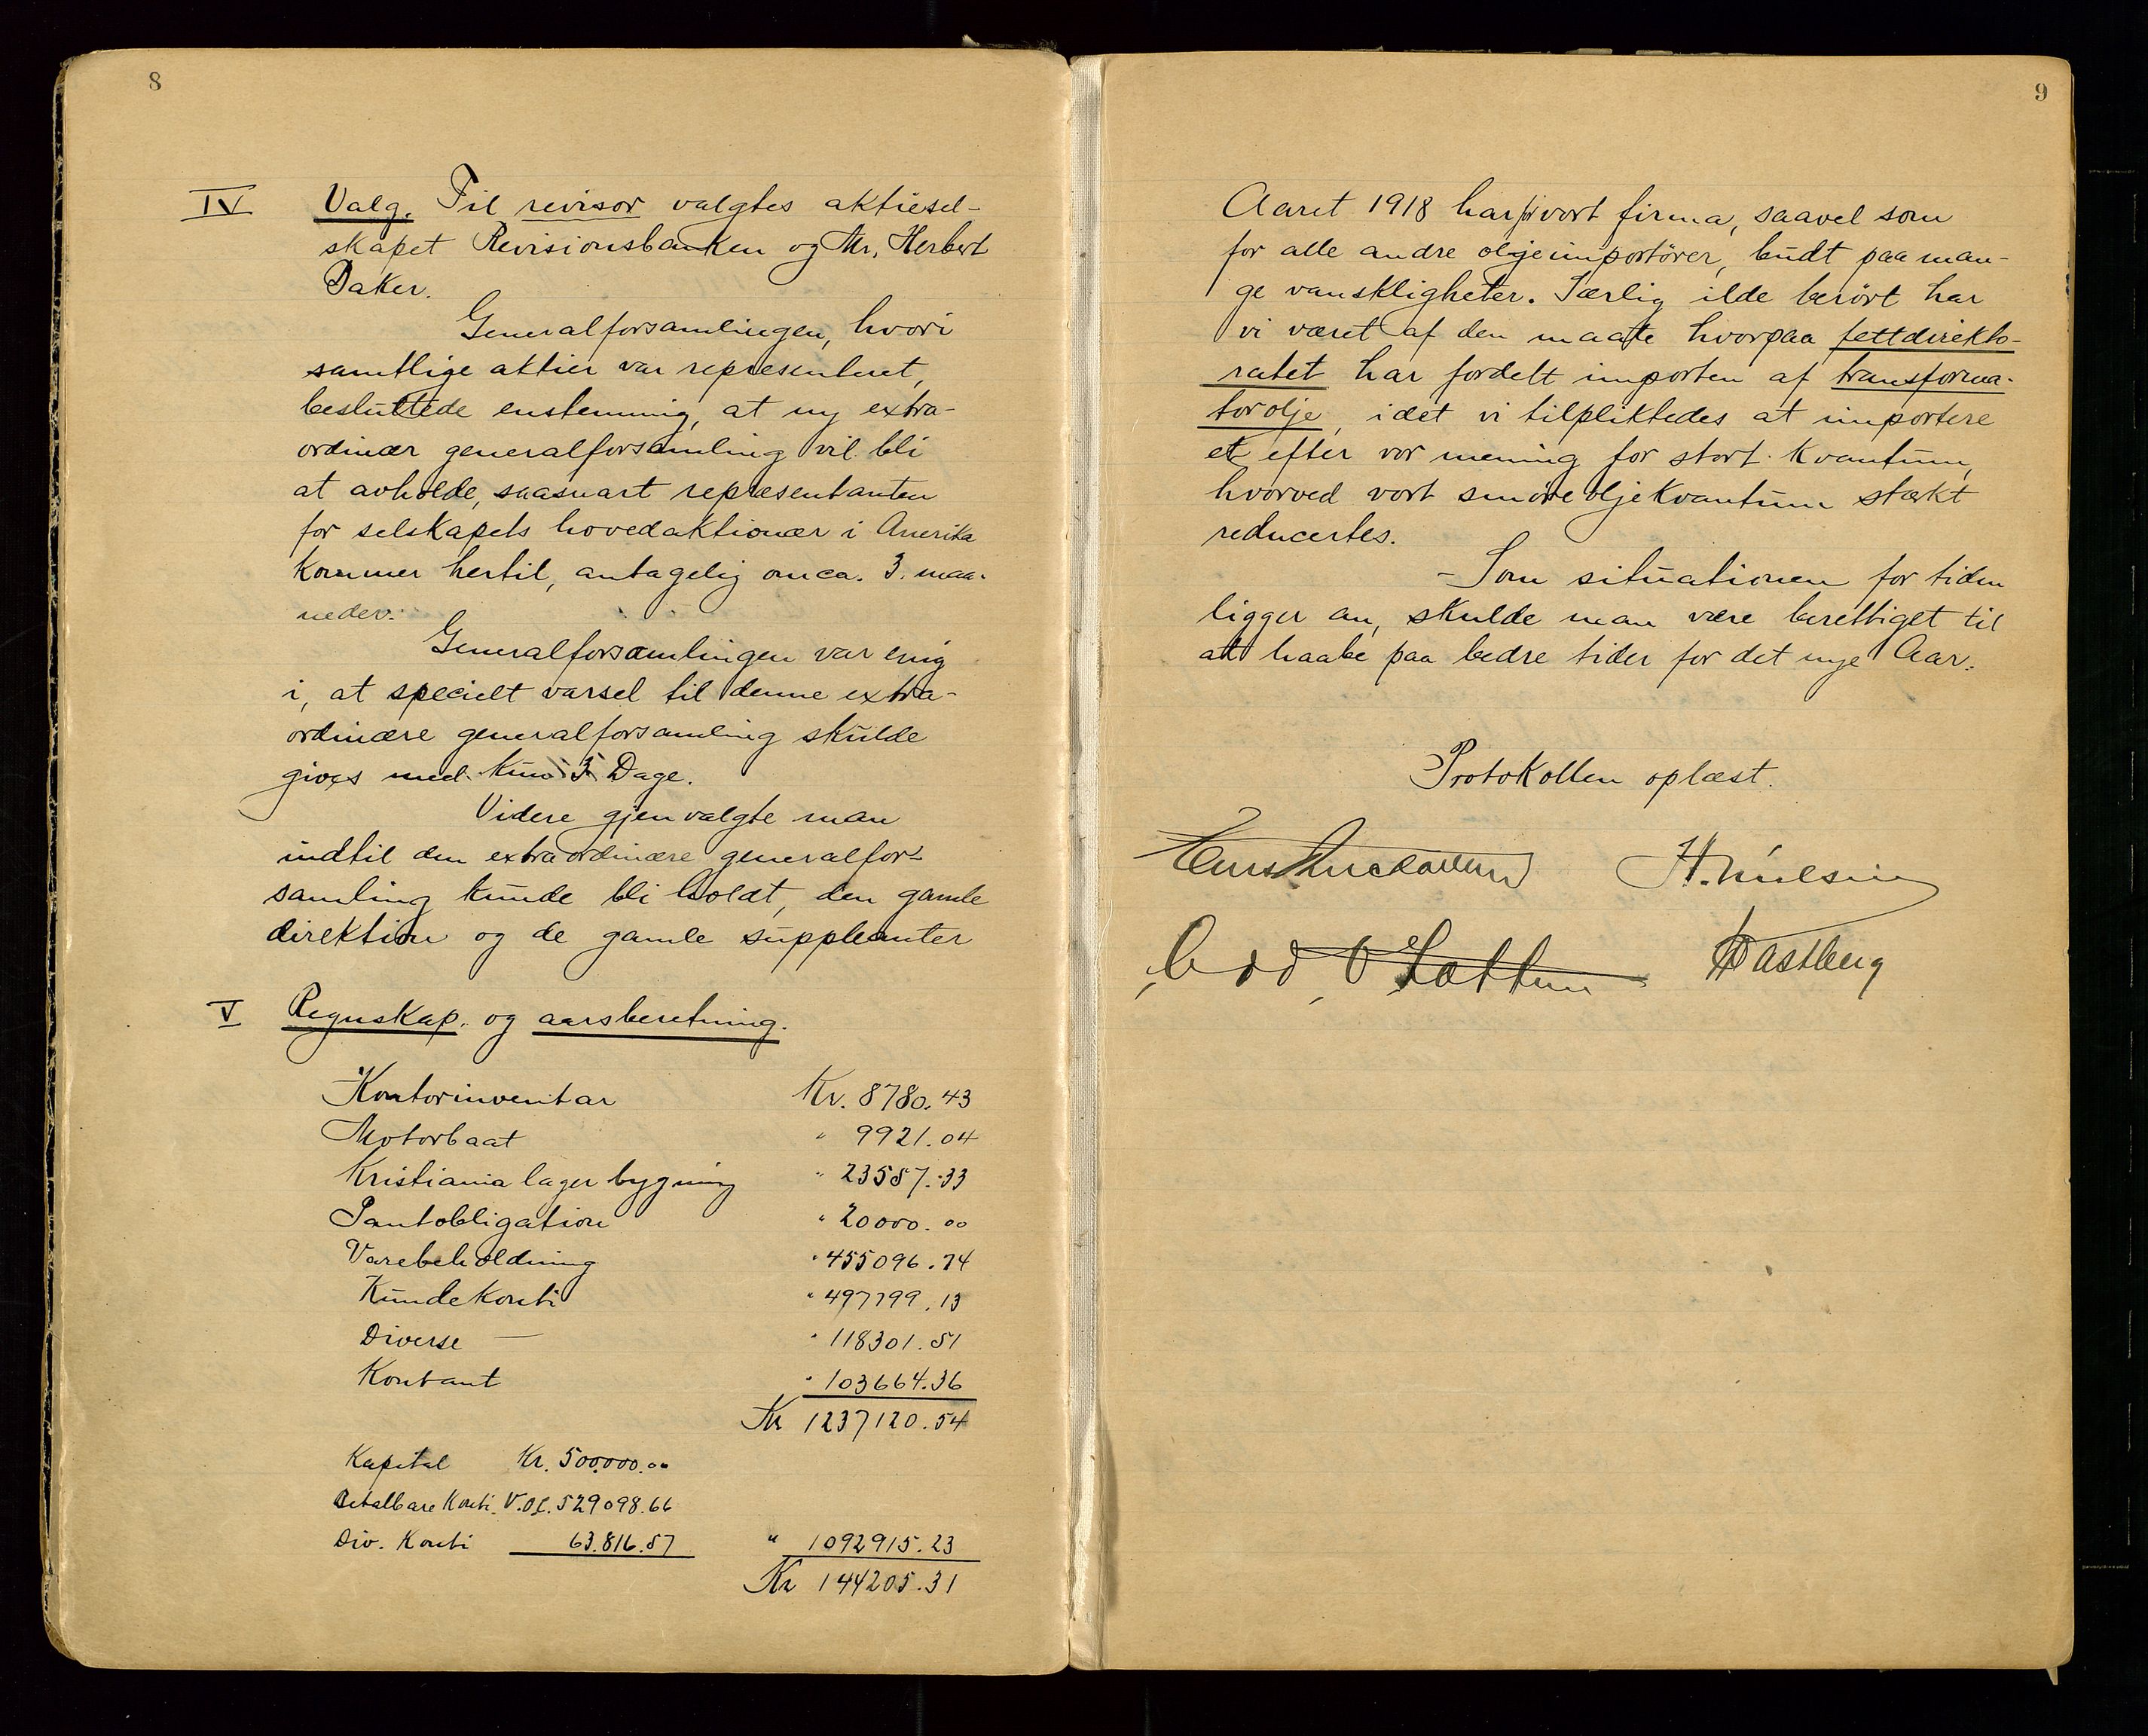 8
IV Valg. Til revisor valgtes aktiesel-
skapet Revisionsbanken og Mr. Herbert
Baker.
Generalforsamlingen, hvori
samtlige aktier var representeret,
besluttede enstemmig, at ny extra-
ordinær generalforsamling vil bli
at avholde, saasnart repræsentanten
for selskapets hovedaktionær i Amerika
kommer hertil, antagelig om ca. 3. maa-
neder.
Generalforsamlingen var enig
i, at specielt varsel til denne extra-
ordinære generalforsamling skulde
gives med kun 3 Dage.
Videre gjenvalgte man
indtil den extraordinære generalfor-
samling kunde bli holdt, den gamle
direktion og de gamle suppleanter
V Regnskap. og aarsberetning.
Kontorinventar Kr. 8780.43
Motorbaat " 9921.04
Kristiania lagerbygning " 23557.33
Pantobligation " 20000.00
Varebeholdning " 455096.74
Kundekonti " 497799.13
Diverse — " 118301.51
Kontant " 103664.36
Kr 1237120.54
Kapital Kr. 500.000.00
Betalbare Konti V.O.C. 529098.66
Div. Konti 63.816.57 " 1092915.23
Kr 144205.31
9
Aaret 1918 har for vort firma, saavel som
for alle andre oljeimportörer, budt paa man-
ge vanskligheter. Særlig ilde berört har
vi været af den maate hvorpaa fettdirekto-
ratet har fordelt importen af transforma-
torolje, idet vi tilpliktedes at importere
et efter vor mening for stort kvantum,
hvorved vort smöreoljekvantum stærkt
reducertes.
- Som situationen for tiden
ligger an, skulde man være berettiget til
at haabe paa bedre tider for det nye Aar.
Protokollen oplæst.